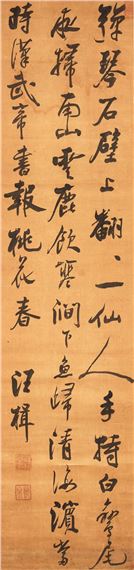 彈琴石壁上翻〻一仙人手持白鸞尾
夜掃南山雲鹿飲寒澗下魚歸清海濱當
時漢武帝書報桃花春 汪楫